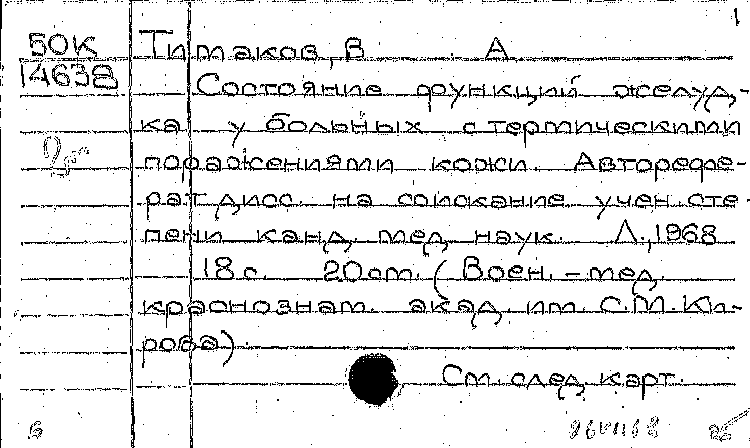 1
50К Титаков, В. А.
14638
Состояние функций желуд-
ка у больных с термическими
поражениями кожи. Авторефе-
рат дисс. на соискание учен. сте-
пени канд. мед. наук. Л., 1968
18 с. 20 см. (Воен.-мед.
краснознам. акад. им. С.М. Ки-
рова).
См. след. карт.